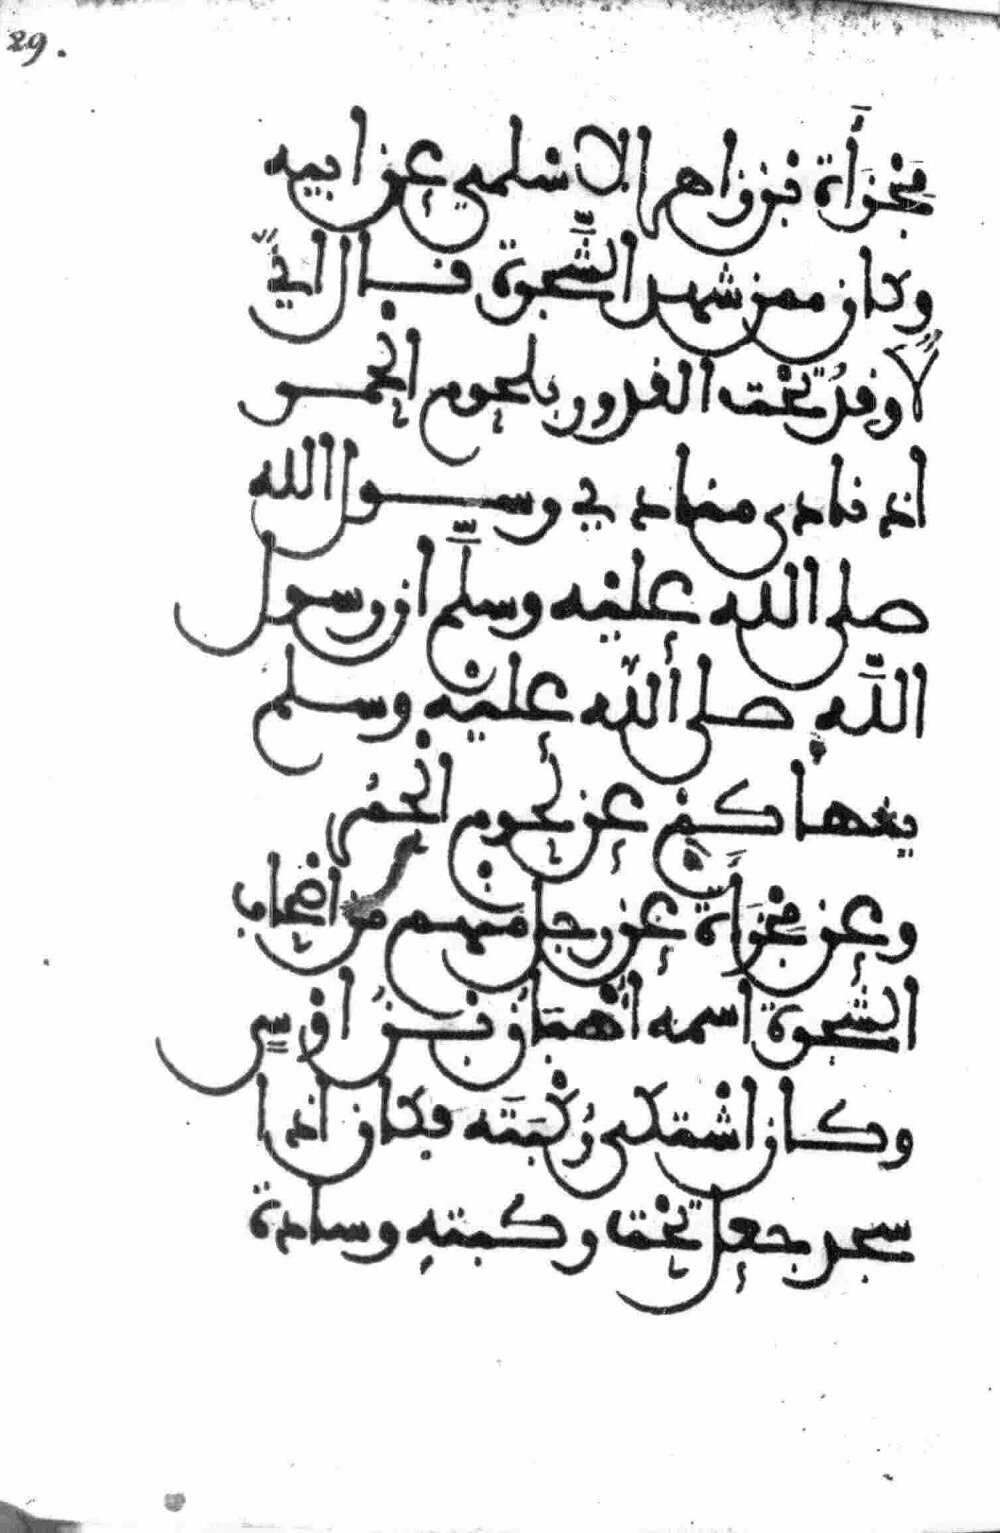 29.
مجزأة بن زاهر الاسلمي عن ابيه
وكان ممن شهد الشجرة قال اني
لا وقد تحت القدور بلحوم الحمر
اذ نادى منادي رسول الله
صلى الله عليه وسلم ان رسول
الله صلى الله عليه وسلم
ينهاكم عن لحوم الحمر
وعن مجزأة عن رجل منهم من اصحاب
الشجرة اسمه اهبان بن اوس
وكان اشتكى ركبته فكان اذا
سجد جعل تحت ركبته وسادة